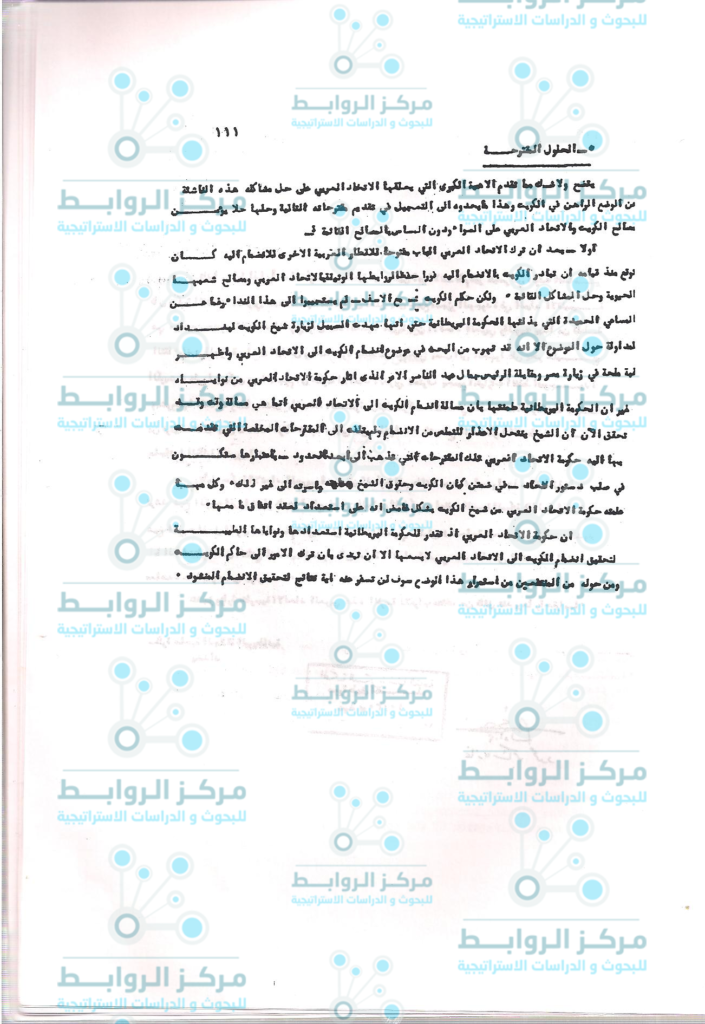 ١١١
٥ـ الحلول المقترحـــــة
يتضح ولاشك مما تقدم الاهمية الكبرى التي يعلقها الاتحاد العربي على حل مشاكله هذه الناشئة
عن الوضع الراهن في الكويت وهذا مايحدوه الى التعجيل في تقديم مقترحاته التالية وحلها حلا يؤمـــــن
مصالح الكويت والاتحاد العربي على السواء ودون المساس بالمصالح القائمة
أولا ـ بعد ان ترك الاتحاد العربي الباب مفتوحا للاقطار العربية الاخرى للانضمام اليه كـــــان
توقع منذ قيامه ان تبادر الكويت بالانضمام اليه فورا حفظا لروابطها الوثيقة بالاتحاد العربي ومصالح شعبهـــا
الحيوية وحل المشاكل القائمة ٠ ولكن حكم الكويت مع الاسف لم يستجيبوا الى هذا النداء رغما عـــــن
المساعي الحميدة التي بذلتها الحكومة البريطانية حتى انها مهدت السبيل لزيارة شيخ الكويت لبغـــــداد
لمداولة حول الموضوع الا انه قد تهرب من البحث في موضوع انضمام الكويت الى الاتحاد العربي واظهـــــر
نية طيبة في زيارة مصر ومقابلة الرئيس جمال عبد الناصر الامر الذى اثار حكومة الاتحاد العربي من نوايـــــاه
غير ان الحكومة البريطانية طمنتها بأن مسالة انضمام الكويت الى الاتحاد العربي انما هي مسالة وقت وقـــد
تحقق الآن ان الشيخ ينتحل الاعذار للتملص من الانضمام الى المقترحات المخلصة التي تقدمـــت
بها اليه حكومة الاتحاد العربي تلك المقترحات التي تذهب الى ابعد الحدود باعتبارها ستكـــــون
في صلب دستور الاتحاد في ضمان كيان الكويت وحقوق الشيخ واسرته الى غير ذلك ٠ وكل مـــــا
علمته حكومة الاتحاد العربي من شيخ الكويت بشكل غامض انه على استعداد لعقد اتفاق ما معها ٠
ان حكومة الاتحاد العربي اذ تقدر للحكومة البريطانية استعدادها ونواياها الطيبـــــة
لتحقيق انضمام الكويت الى الاتحاد العربي لايسعها الا ان تبدى بان ترك الامور الى حاكم الكويـــــت
ومن حوله من المنتفعين من استمرار هذا الوضع سوف لن تسفر عنه اية نتائج لتحقيق الانضمام المنشود ٠
مركز الروابط
للبحوث و الدراسات الاستراتيجية